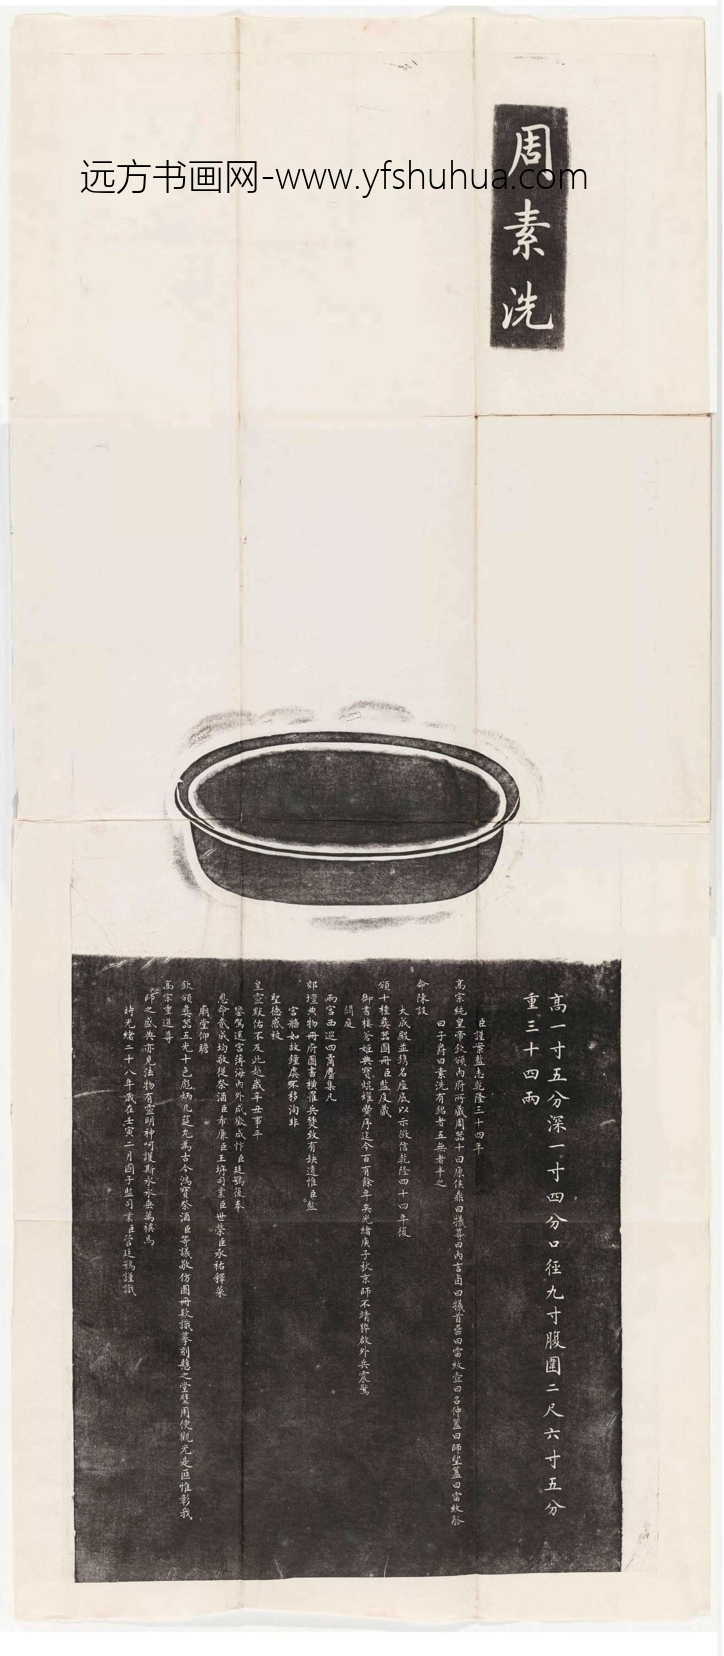 远方书画网-www.yfshuhua.com
周素洗
高一寸五分深一寸四分口徑九寸腹圍二尺六寸五分
重三十四兩
臣謹案監志乾隆三十四年
高宗純皇帝欽頒內府所藏周器十曰康侯鼎曰犧尊曰內言卣曰犧首罍曰雷紋壺曰召仲簠曰師望簋曰雷紋觚
曰子爵曰素洗有銘者五無者半之
命陳設
大成殿並鐫名座底以示徵信乾隆四十四年復
頒十種彝器圖冊臣監庋藏
御書樓爰姬典寶焜燿黌序迄今百有餘年矣光緒庚子秋京師不靖猝啟外兵震驚
闕庭
兩宮西巡四裔麕集凡
郊壇典物冊府圖書橫罹兵燹致有抉遺惟臣監
宮牆如故鐘虡不移洵非
聖德感被
皇靈默佑不及此越歲辛丑事平
鑾駕還宮薄海內外咸臣廷鶚復奉
恩命貳成均敬從祭酒臣希廉臣王垿司業臣世榮臣承祐釋菜
廟堂仰瞻
欽頒彝器五光十色彪炳几筵允為古今鴻寶祭酒臣等議敬仿圖冊款識摹刻懸之堂壁用便觀光是匪惟彰我
高宗重道尊
師之盛典亦見法物有靈明神呵護斯永永無萬禩焉
時光緒二十八年歲在壬寅二月國子監司業臣管廷鶚謹識